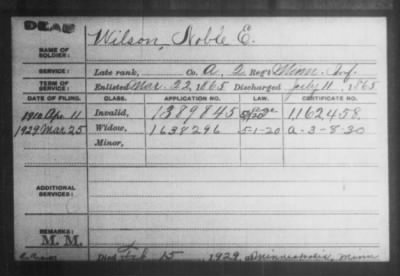 DEAD
NAME OF SOLDIER: Wilson, Noble E.
SERVICE: Late rank, Co. A, 2 Reg't Minn. Inf.
TERM OF SERVICE: Enlisted Mar. 22, 1865 Discharged July 11, 1865
DATE OF FILING. CLASS. APPLICATION NO. LAW. CERTIFICATE NO.
1910 Apr. 11 Invalid, 1389845 1162458.
1929 Mar 25 Widow, 1638296 5-1-20 A-3-8-30
Minor,
ADDITIONAL SERVICES:
REMARKS:
M. M.
Died Feb 15, 1929, Minneapolis, Minn